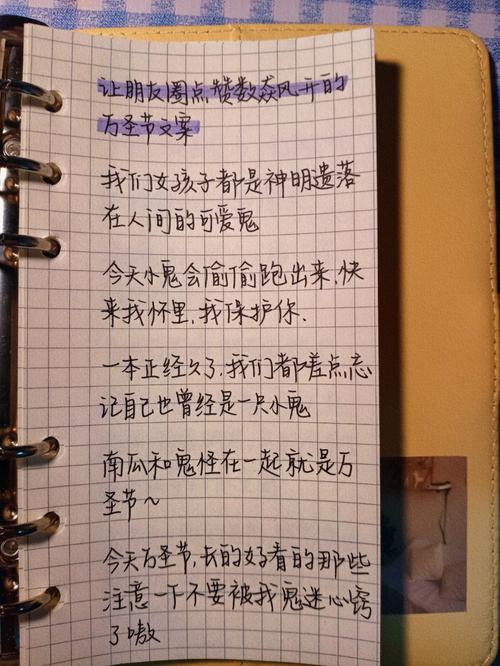 让朋友圈点赞数猋风开的
万圣节文案
我们女孩子都是神明遗落
在人间的可爱鬼
今天小鬼会偷偷跑出来,快
来我怀里,我保护你.
一本正经久了,我们都差点忘
记自己也曾经是一只小鬼
南瓜和鬼怪在一起就是万
圣节~
今天万圣节,长的好看的那些
注意一下不要被我鬼迷心窍
了嗷